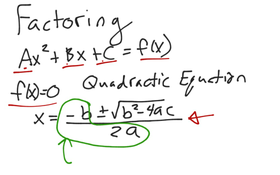 Factoring
Ax² + Bx + C = f(x)
f(x)=0 Quadractic Equation
x = -b ± √b²-4ac / 2a